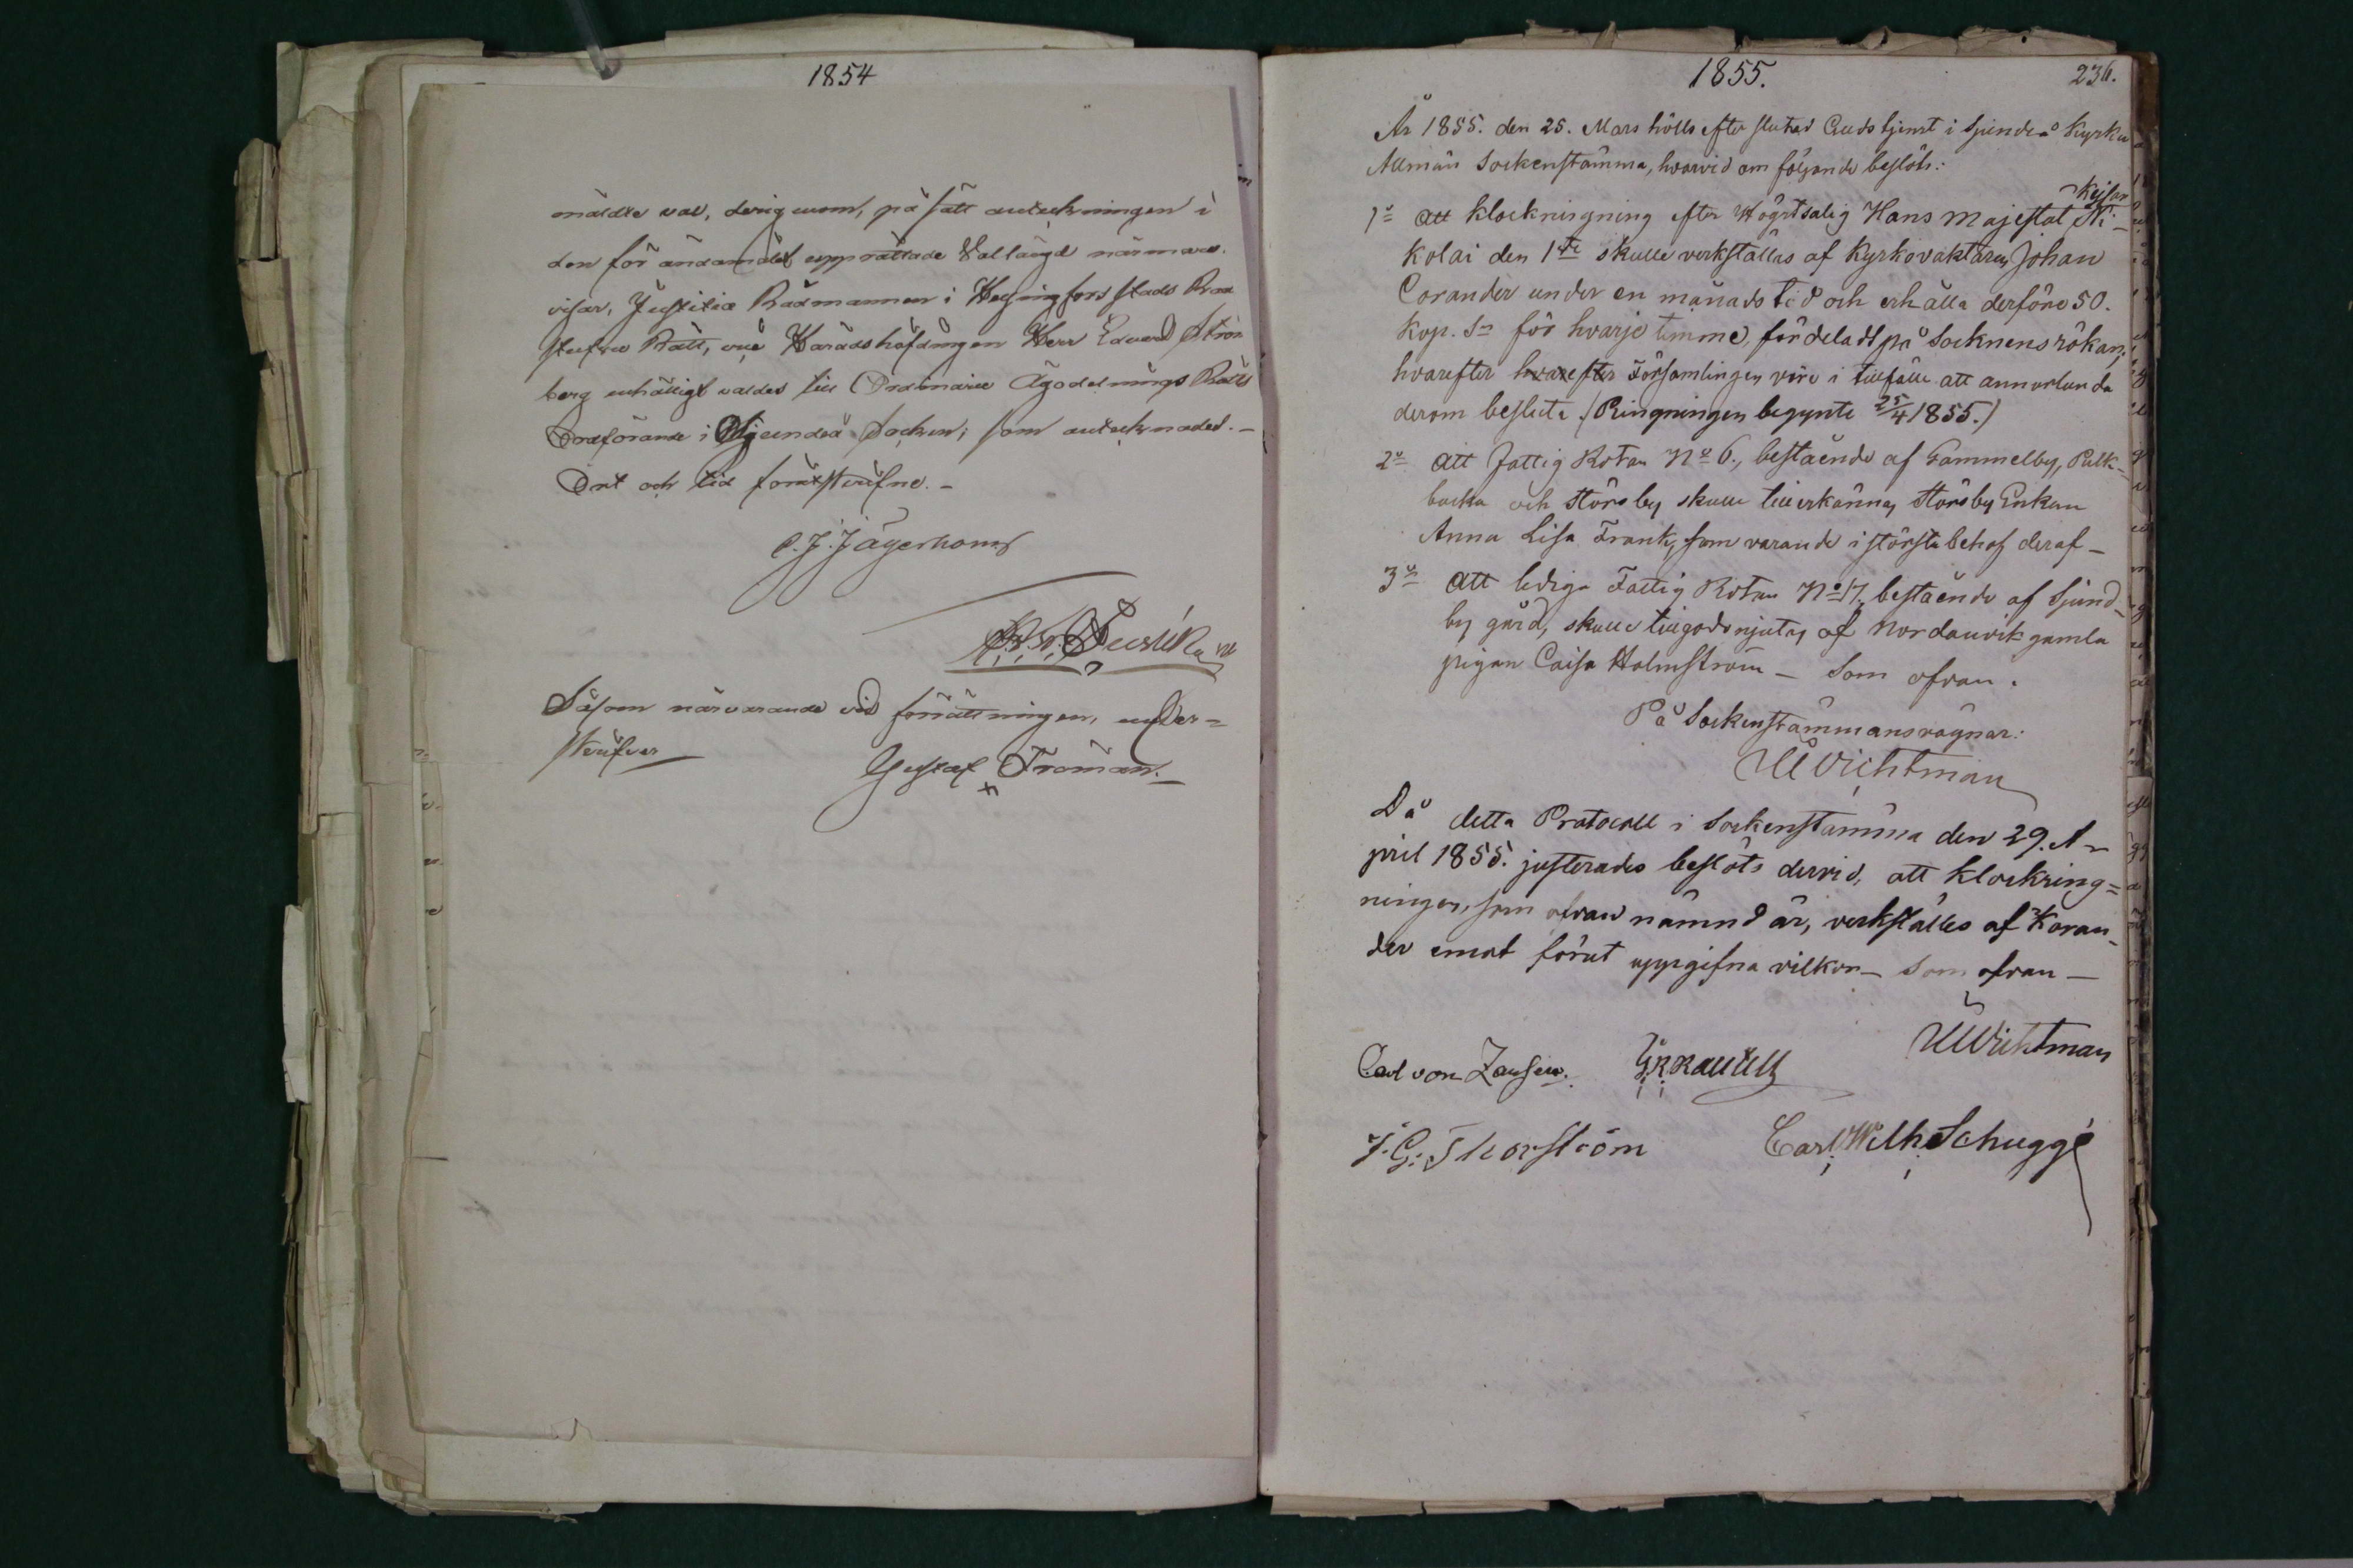 1854
mäldte val, derigenom, på sätt anteckningen i
den för ändamålet upprättade Vallängd närmare
visar, Justitiæ Rådmannen i Helsingfors stads
Rätt, Häradshöfdingen Herr Edvard Ström
berg enhälligt valdes till Ordinarie Ägodelnings Rätts
Ordförande i Sjundeå Socken; som antecknades. –
Ort och tid förutskrifne. –
C. J. Jägerhorn
Såsom närvarande vid förrättningen, under=
skrifver
Gustaf Froman. –
1855.
236.
År 1855. den 25. Mars hölls efter slutad Gudstjenst i Sjundeå Kyrka
Allmän Sockenstämma, hvarvid om följande beslöts:
Kejsar
1º Att klockringning efter Högtsalig Hans Majestät Ni-
kolai den 1ste skulle verkställas af Kyrkovaktaren Johan
Corander under en månads tid och erhålla derföre 50.
Kop. Sr för hvarje timme, fördeladt på Socknens rökar;
hvarefter hvarefter Församlingen vore i tillfälle att annorlunda
derom besluta. (Ringningen begynte 25/4 1855.)
2º Att Fattig Rotan Nº 6., bestående af Gammelby, Pulk-
backa och Störsby skulle tillerkännas Störsby Enkan
Anna Lisa Frank, som varande i största behof deraf –
3º Att lediga Fattig Rotan Nº 17. bestående af Sjund-
by gård, skulle tillgodonjutas af Nordanvik gamla
pigan Caisa Holmström – Som ofvan.
På Sockenstämmans vägnar:
Wichtman
Då detta Protocoll i Sockenstämma den 29. A-
pril 1855. justerades beslöts dervid, att klockring=
ningen, som ofvan nämnd är, verkställes af Koran-
der emot förut uppgifna vilkor – Som ofvan –
Wichtman
Carl von Zansen.
J. G. Thorström
Carl Wilh Schuggé